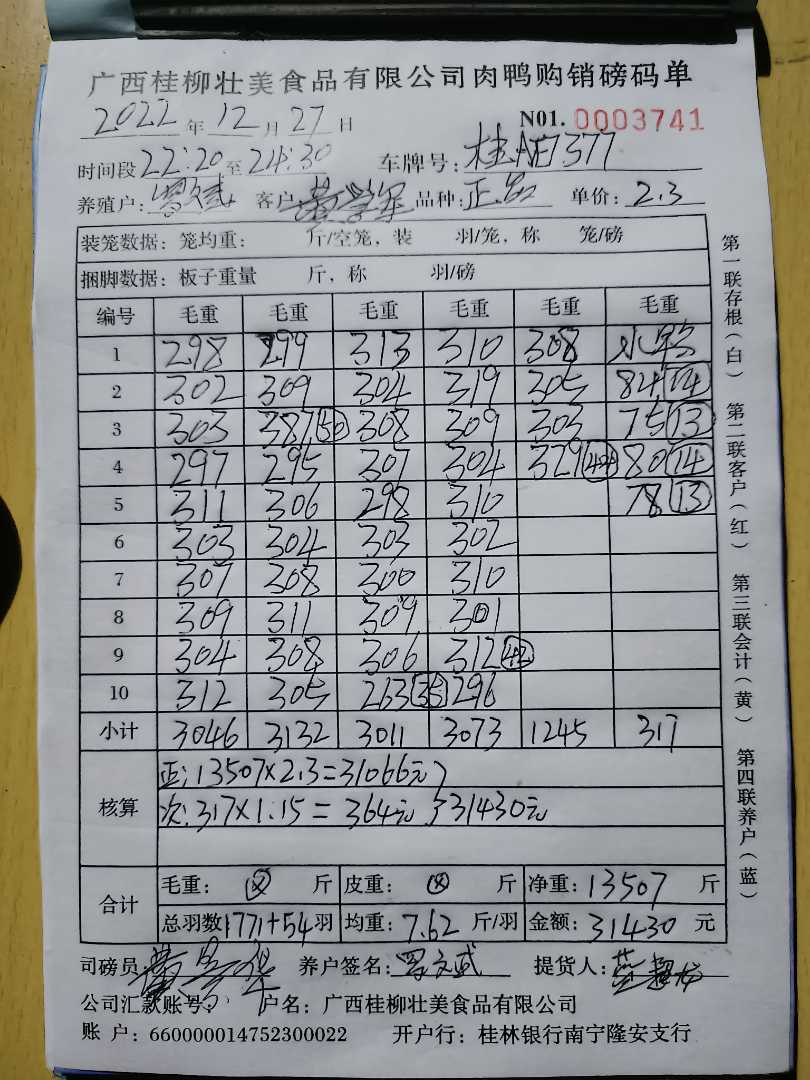 广西桂柳壮美食品有限公司肉鸭购销磅码单
2022年12月27日 N01. 0003741
时间段22:20至24:30 车牌号:桂AE7377
养殖户: 客户: 品种:正品 单价:2.3
装笼数据:笼均重: 斤/空笼,装 羽/笼,称 笼/磅
捆脚数据:板子重量 斤,称 羽/磅
编号 毛重 毛重 毛重 毛重 毛重 毛重
1 298 299 313 310 308 小鸭
2 302 309 304 319 305 84 14
3 303 387 50 308 309 303 75 13
4 297 295 307 304 329 80 14
5 311 306 298 310 78 13
6 303 304 303 302
7 307 308 300 310
8 309 311 309 301
9 304 308 306 312 42
10 312 305 263 35 296
小计 3046 3132 3011 3073 1245 317
核算
正:13507×2.3=31066元
次:317×1.15=364元 }31430元
合计
毛重: 斤 皮重: 斤 净重:13507斤
总羽数1771+54羽 均重:7.62斤/羽 金额:31430元
司磅员: 养户签名: 提货人:
公司汇款账号: 户名:广西桂柳壮美食品有限公司
账 户:660000014752300022 开户行:桂林银行南宁隆安支行
第一联存根(白) 第二联客户(红) 第三联会计(黄) 第四联养户(蓝)